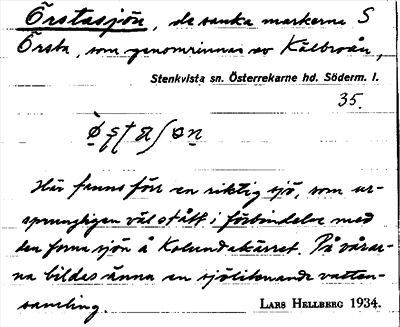 Örstasjön, de sanka markerna S
Örsta, som genomrinnas av Kälbroån,
Stenkvista sn. Österrekarne hd. Söderm. l.
35.
Här fanns förr en riktig sjö, som ur-
sprungligen väl stått i förbindelse med
den forna sjön å Kolundakärret. På vårar-
na bildas ännu en sjöliknande vatten-
samling.
LARS HELLBERG 1934.